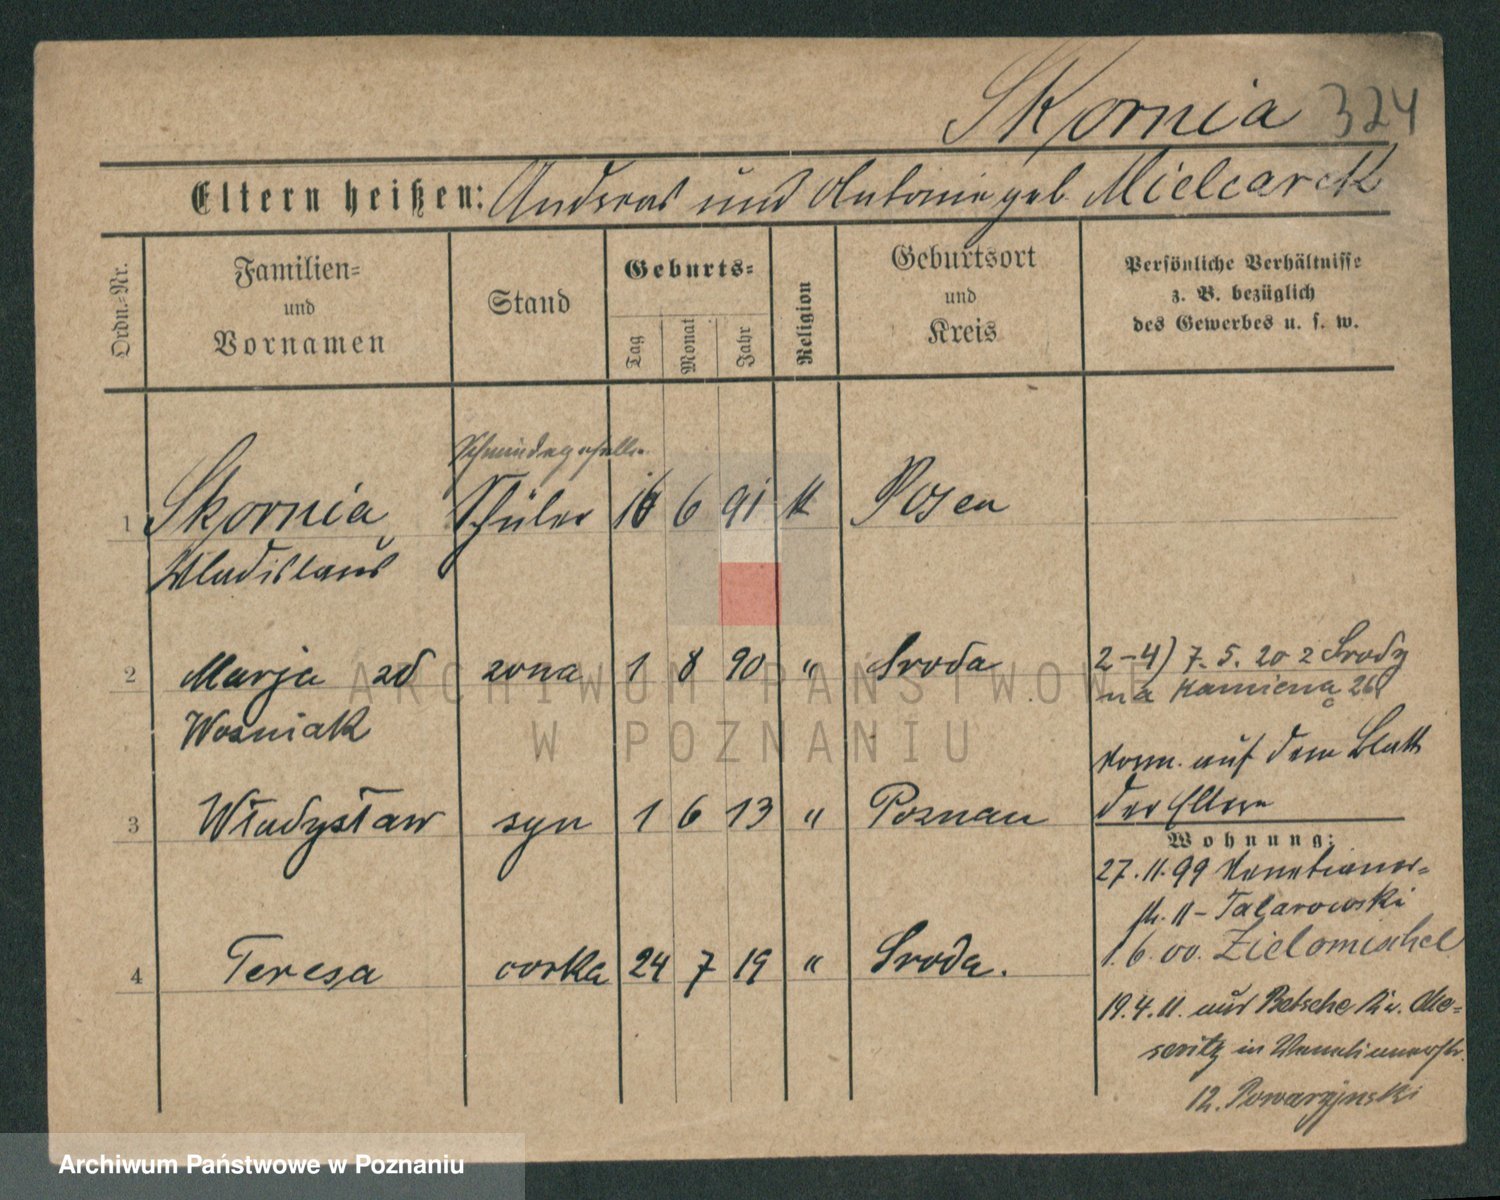 Skornia 324
Eltern heißen: Andreas und Antonie geb. Mielcarek
Ordn.=Nr.
Familien=
und
Vornamen
Stand
Geburts=
Tag
Monat
Jahr
Religion
Geburtsort
und
Kreis
Persönliche Verhältnisse
z. B. bezüglich
des Gewerbes u. s. w.
Schmiedegeselle
1 Skornia Schüler 16 6 91 K Posen
Wladislaus
2 Marja zd zona 1 8 90 " Sroda
Wozniak
2-4) 7. 5. 20 z Srody
na Kamienną 26
3 Władysław syn 1 6 13 " Poznań
Vorm. auf dem Blatt
der Eltern
Wohnung:
27. 11. 99 Venetianer=
str. 11 - Talarowski
4 Teresa corka 24 7 19 " Sroda.
1. 6. 00. Zielomischel
19. 4. 11. aus Betsche Kr. Me=
seritz in Venetianerstr.
12.
ARCHIWUM PAŃSTWOWE
W POZNANIU
Archiwum Państwowe w Poznaniu